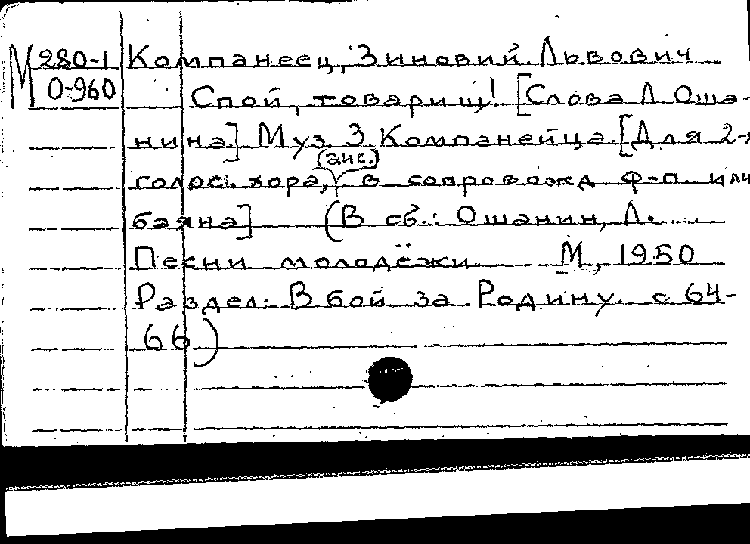 М 280-1 Компанеец, Зиновий Львович
О-960 Спой, товарищ! [Слова Л. Оша-
нина.] Муз. З. Компанейца. [Для 2-х
(анс.)
голосн. хора, в сопровожд. ф-п. или
баяна] (В сб.: Ошанин, Л.
Песни молодёжи. М., 1950
Раздел: В бой за Родину. с 64-
66)